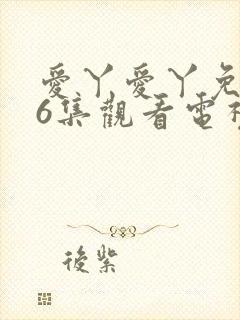 愛丫愛丫免
6集觀看電視
後紫